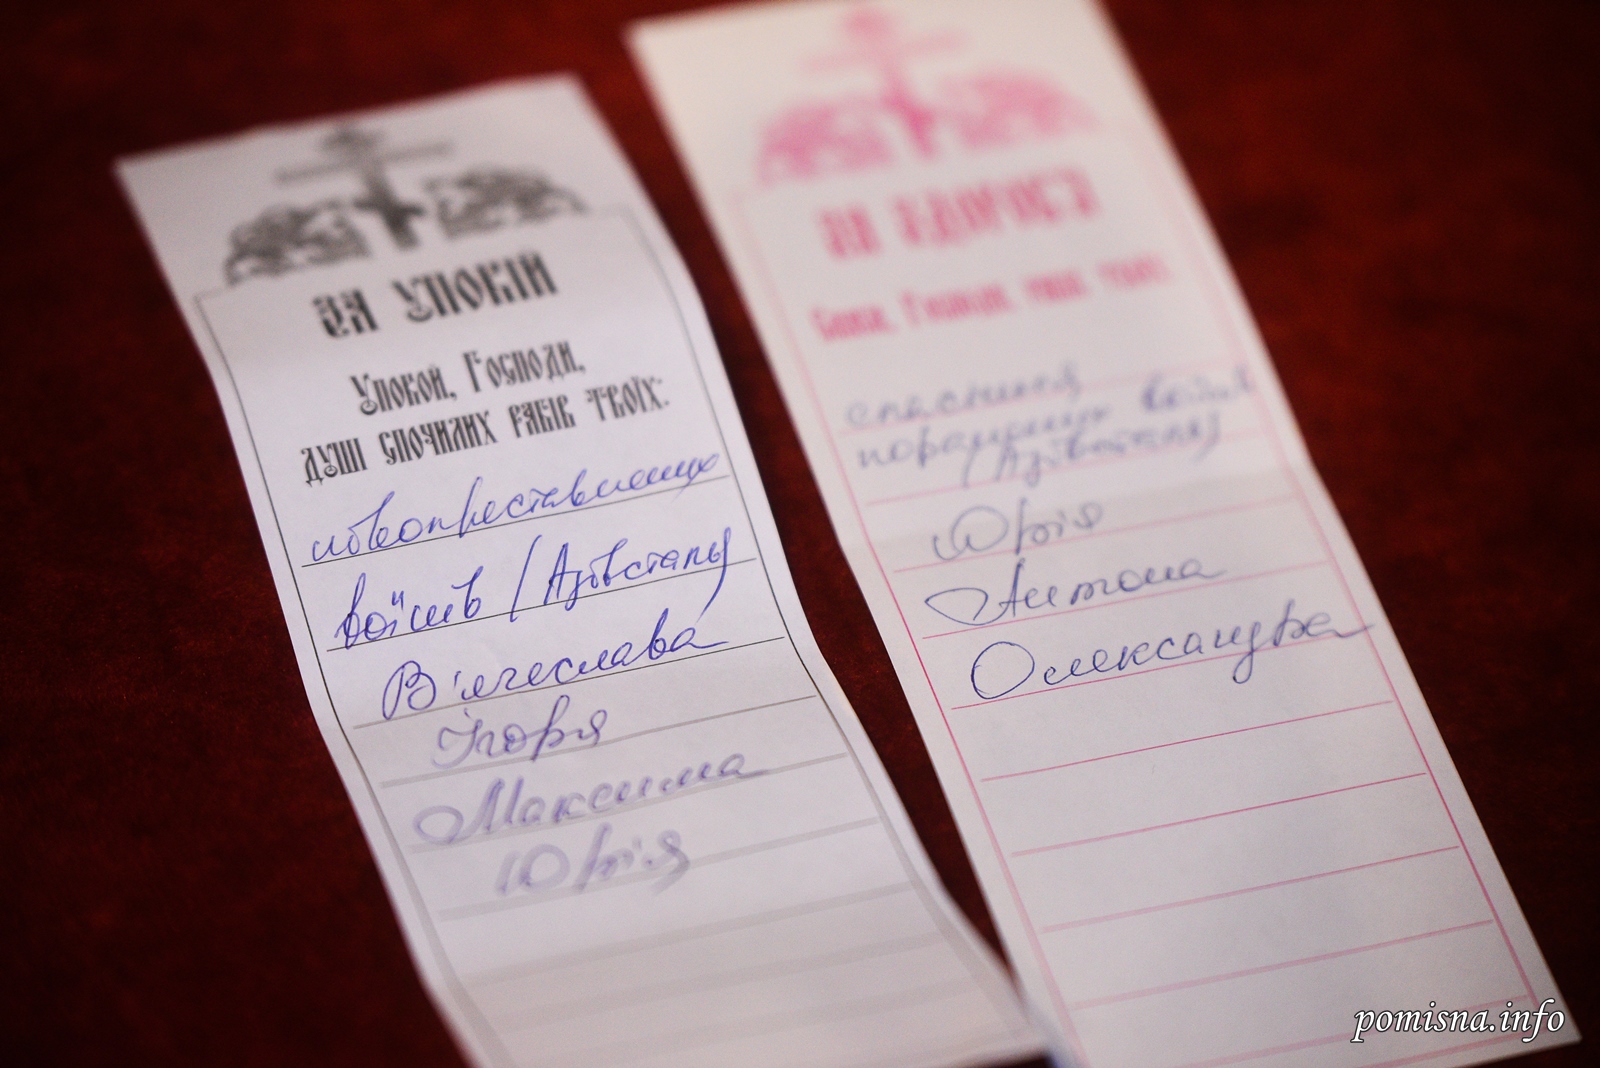 ЗА УПОКІЙ
Упокой, Господи,
душі спочилих рабів твоїх:
новопреставлених
воїнів (Азовсталь)
В'ячеслава
Ігоря
Максима
Юрія
ЗА ЗДОРОВ'Я
Спаси, Господи,
спасіння
поранених воїнів
(Азовсталь)
Юрія
Антона
Олександра
pomisna.info